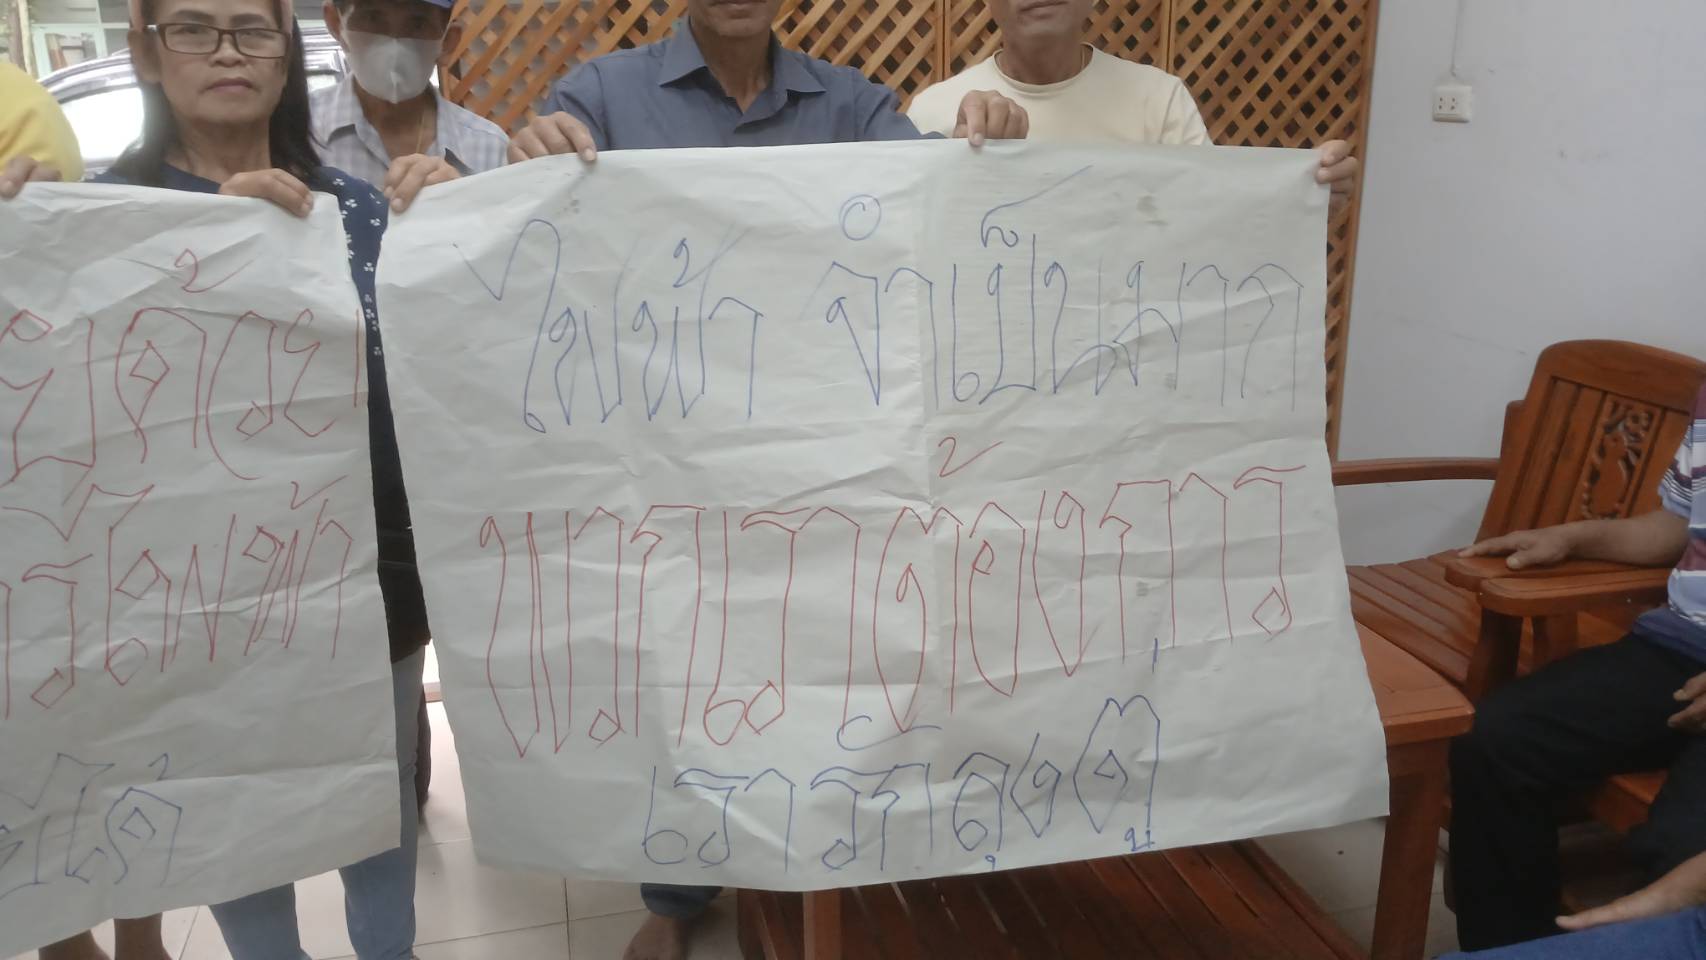 ด้วย
ไฟฟ้า
ได้
ไฟฟ้า จำเป็นมาก
พวกเราต้องการ
เรารักลุงตู่